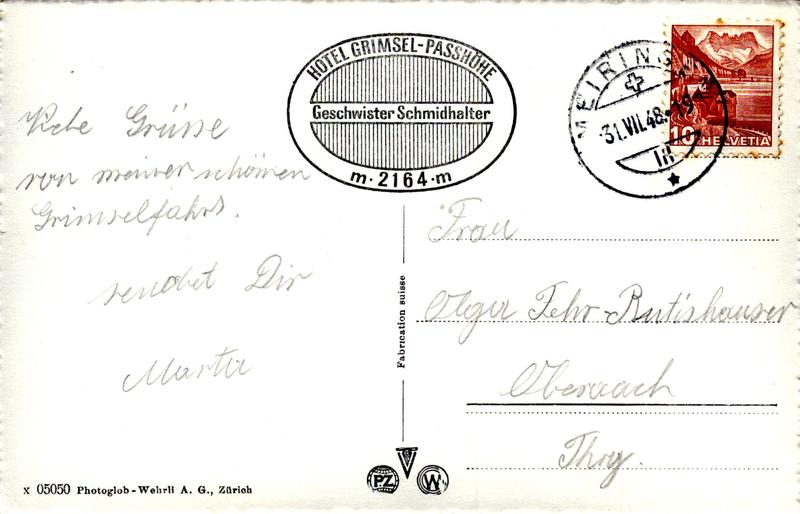 HOTEL GRIMSEL-PASSHÖHE
Geschwister Schmidhalter
m·2164·m
MEIRINGEN
31.VII.48-19
10 HELVETIA
Liebe Grüsse
von meiner schönen
Grimselfahrt.
sendet Dir
Marta
Fabrication suisse
Frau
Olga Fehr-Rutishauser
Oberaach
Thrg.
PZ
W
x 05050 Photoglob-Wehrli A. G., Zürich